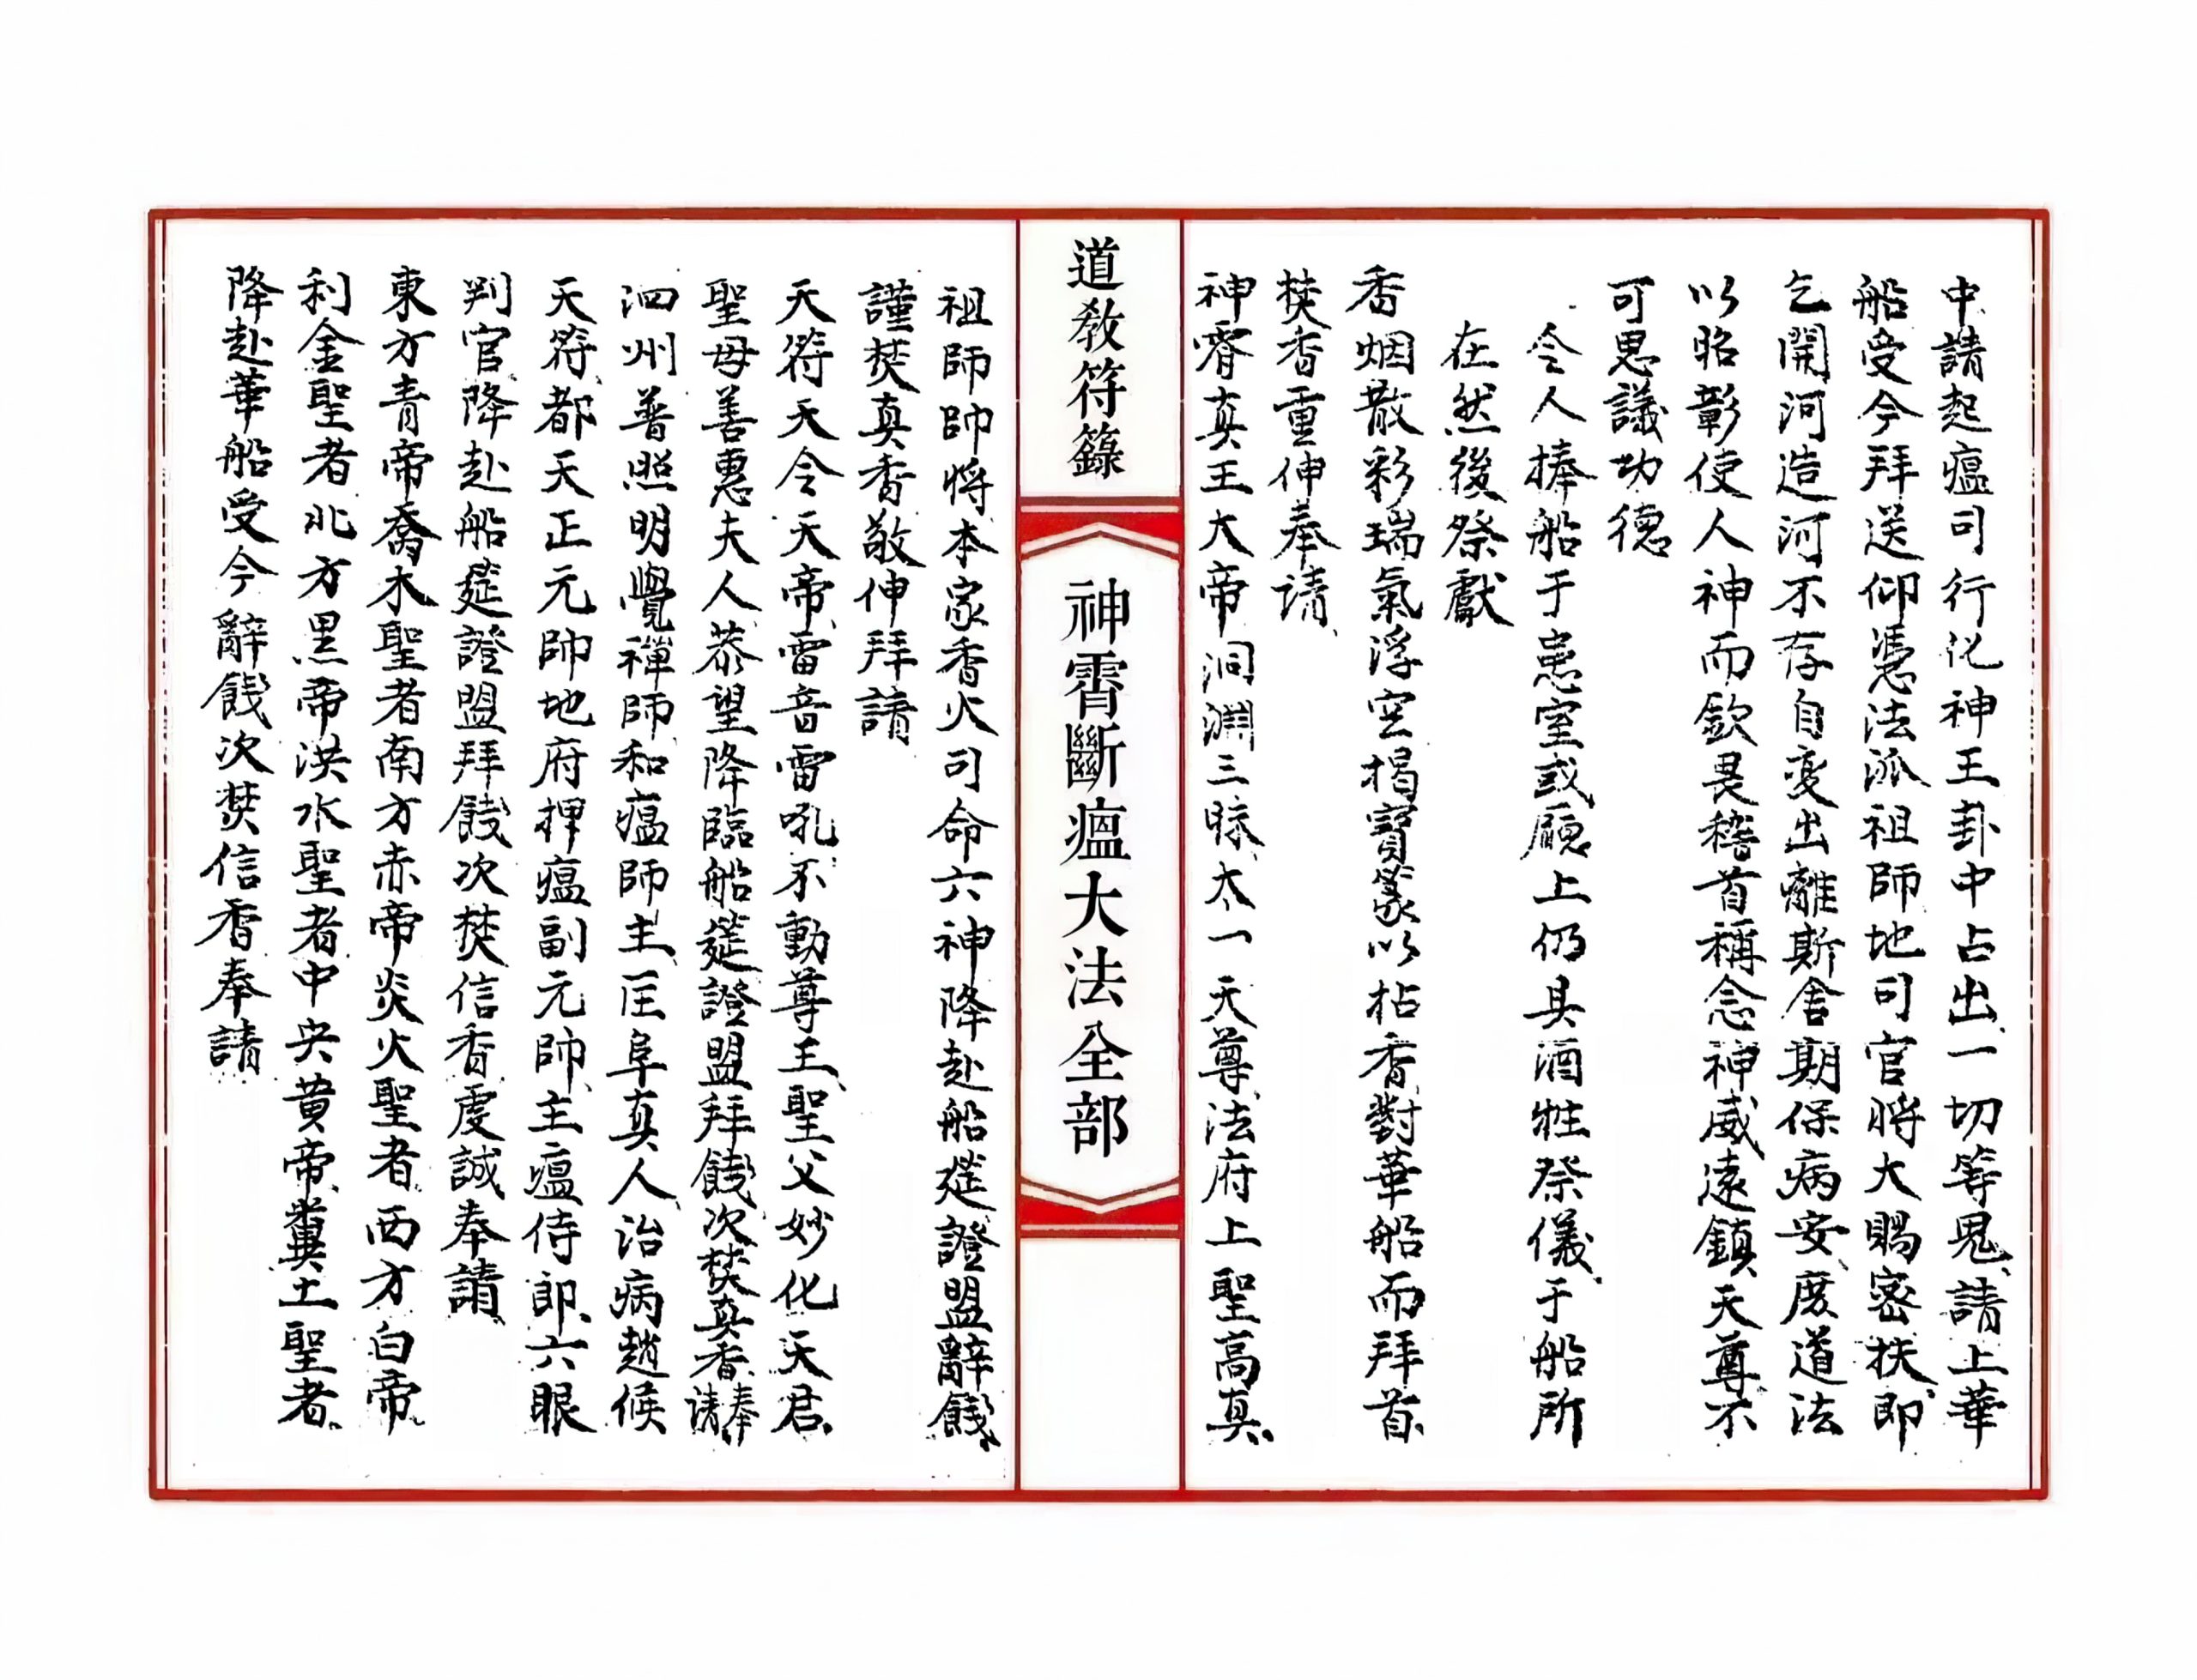 中請起瘟司行化神王卦中占出一切等鬼請上華
船受今拜送仰憑法派祖師地司官將大賜密扶即
乞開河造河不存自变出離斯舍期保病安度道法
以昭彰使人神而欽畏稽首稱念神威遠鎮天尊不
可思議功德
令人捧船于患室或廳上仍具酒牲祭儀于船所
在然後祭獻
香烟散彩瑞氣浮空揭寶篆以拈香對華船而拜首
焚香重伸奉請
神霄真王大帝洞淵三昧太一天尊法府上聖高真
道教符籙
神霄斷瘟大法全部
祖師帥將本家香火司命六神降赴船筵證盟辭餞
謹焚真香敬伸拜請
天符天令天帝雷音雷吼不動尊王聖父妙化天君
聖母善惠夫人恭望降臨船筵證盟拜餞次焚真香奉請
泗州普照明覺禪師和瘟師主匡阜真人治病趙候
天符都天正元帥地府押瘟副元帥主瘟侍郎六眼
判官降赴船筵證盟拜餞次焚信香虔誠奉請
東方青帝喬木聖者南方赤帝炎火聖者西方白帝
利金聖者北方黑帝洪水聖者中央黃帝糞土聖者
降赴華船受今辭餞次焚信香奉請